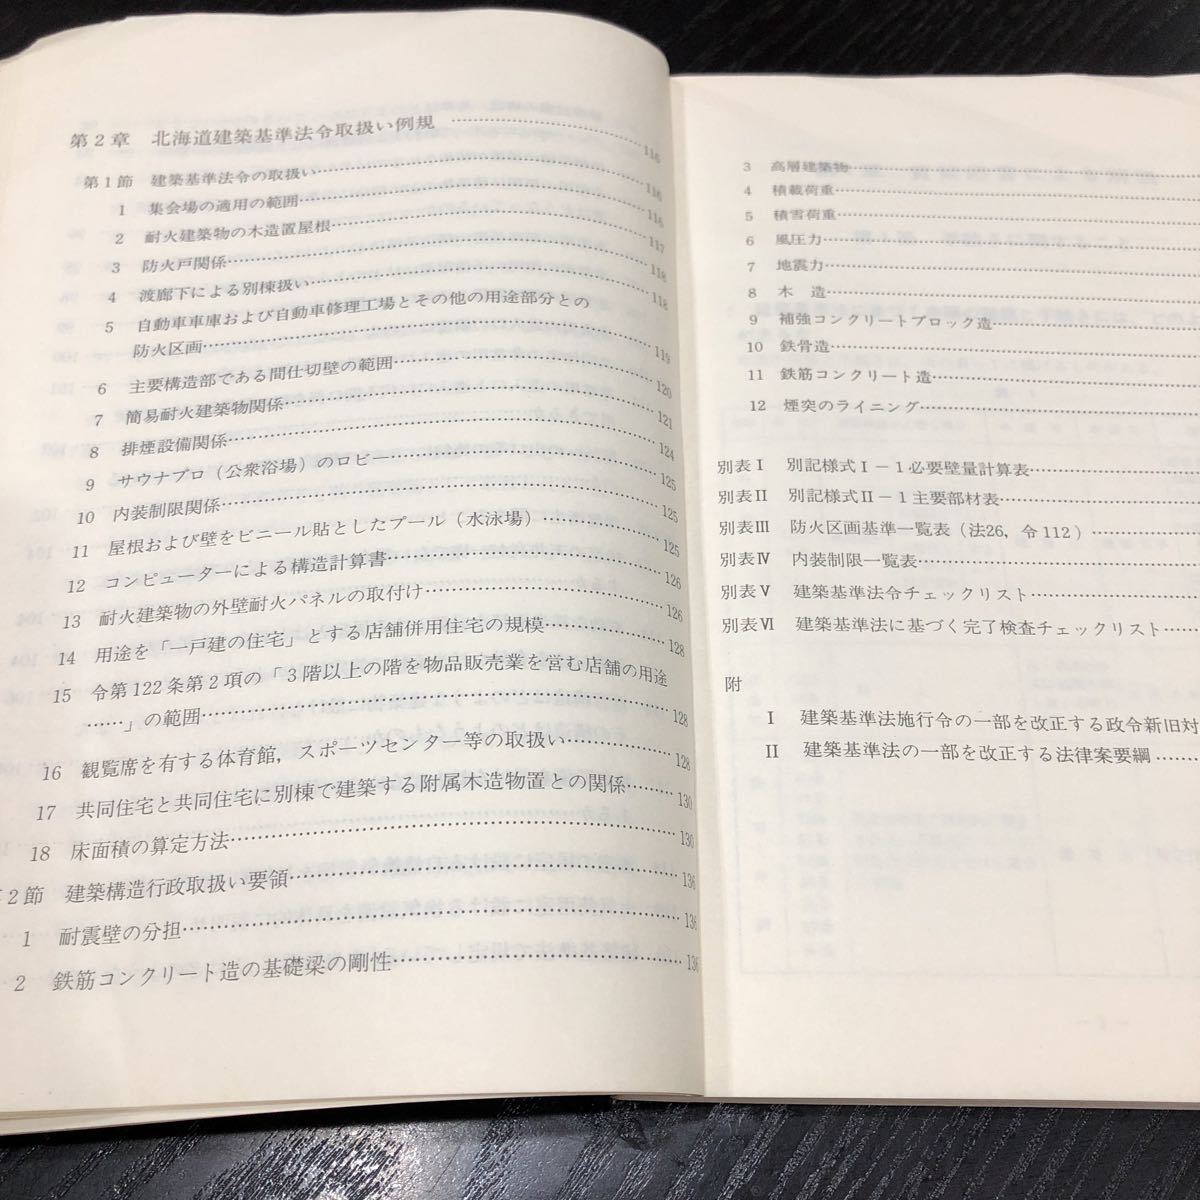 第2章 北海道建築基準法令取扱い例規 …… 116
第1節 建築基準法令の取扱い …… 116
1 集会場の適用の範囲 …… 116
2 耐火建築物の木造置屋根 …… 117
3 防火戸関係 …… 118
4 渡廊下による別棟扱い …… 118
5 自動車車庫および自動車修理工場とその他の用途部分との
防火区画 …… 119
6 主要構造部である間仕切壁の範囲 …… 120
7 簡易耐火建築物関係 …… 121
8 排煙設備関係 …… 124
9 サウナブロ（公衆浴場）のロビー …… 125
10 内装制限関係 …… 125
11 屋根および壁をビニール貼としたプール（水泳場） …… 125
12 コンピューターによる構造計算書 …… 126
13 耐火建築物の外壁耐火パネルの取付け …… 126
14 用途を「一戸建の住宅」とする店舗併用住宅の規模 …… 128
15 令第122条第2項の「3階以上の階を物品販売業を営む店舗の用途
……」の範囲 …… 128
16 観覧席を有する体育館，スポーツセンター等の取扱い …… 128
17 共同住宅と共同住宅に別棟で建築する附属木造物置との関係 …… 130
18 床面積の算定方法 …… 130
2節 建築構造行政取扱い要領 …… 136
1 耐震壁の分担 …… 136
2 鉄筋コンクリート造の基礎梁の剛性 …… 136
3 高層建築物 ……
4 積載荷重 ……
5 積雪荷重 ……
6 風圧力 ……
7 地震力 ……
8 木造 ……
9 補強コンクリートブロック造 ……
10 鉄骨造 ……
11 鉄筋コンクリート造 ……
12 煙突のライニング ……
別表Ⅰ 別記様式Ⅰ－1必要壁量計算表 ……
別表Ⅱ 別記様式Ⅱ－1主要部材表 ……
別表Ⅲ 防火区画基準一覧表（法26，令112） ……
別表Ⅳ 内装制限一覧表 ……
別表Ⅴ 建築基準法令チェックリスト ……
別表Ⅵ 建築基準法に基づく完了検査チェックリスト ……
附
Ⅰ 建築基準法施行令の一部を改正する政令新旧対
Ⅱ 建築基準法の一部を改正する法律案要綱 ……